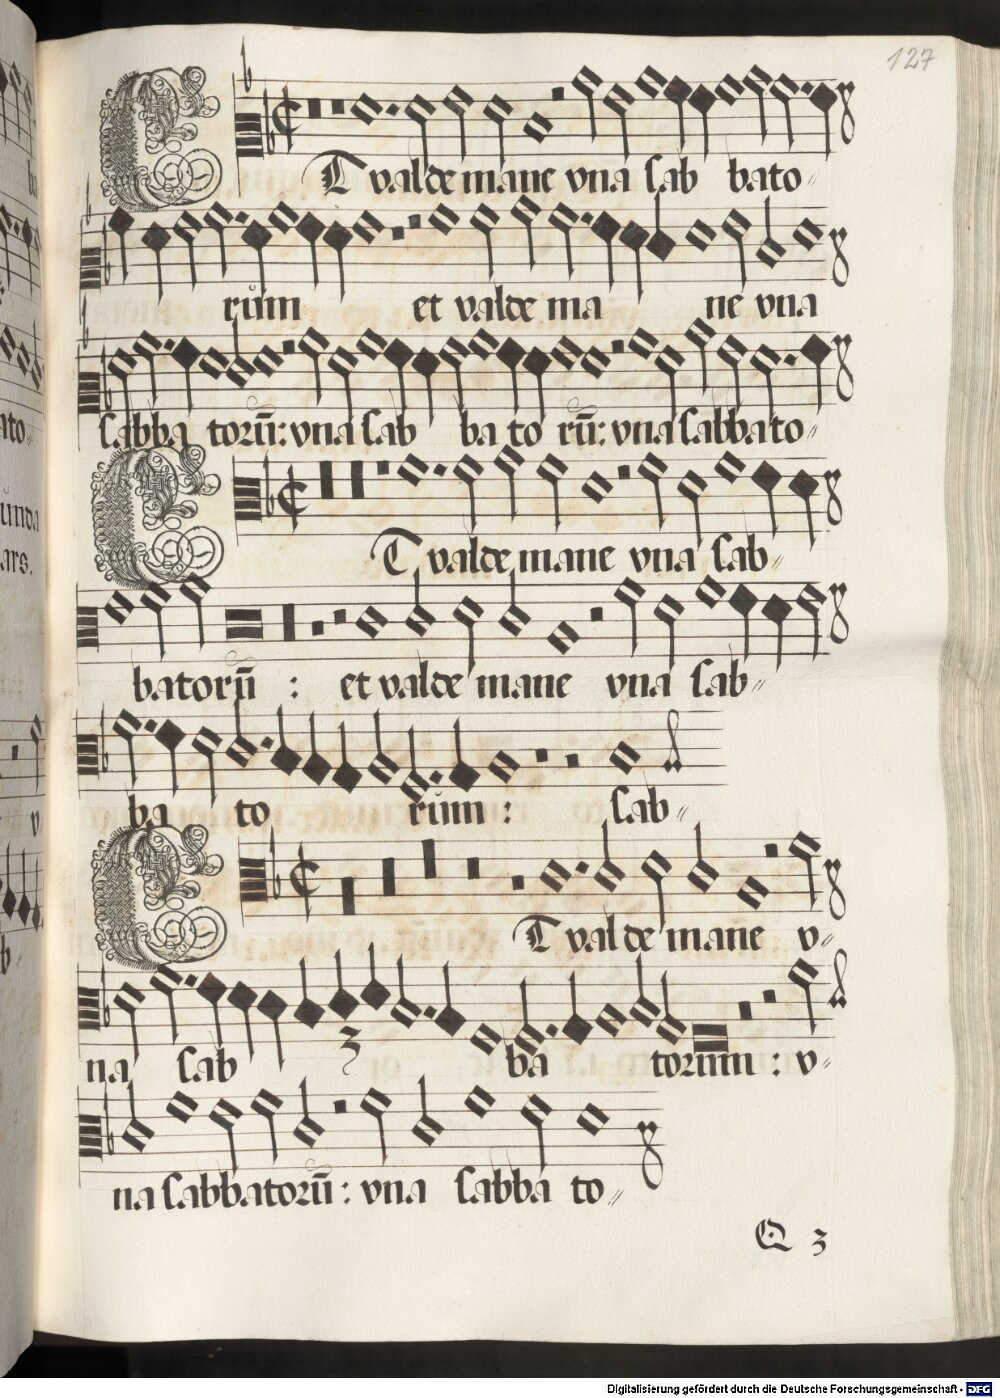 127
Et valde mane vna sab bato
rum et valde ma ne vna
sabba torū: vna sab ba to rū: vna sabbato
Et valde mane vna sab
batorū : et valde mane vna sab
ba to rum : sab
Et valde mane v
na sab ba torum : v
3
na sabbatorū : vna sabba to
Q 3
Digitalisierung gefördert durch die Deutsche Forschungsgemeinschaft - DFG